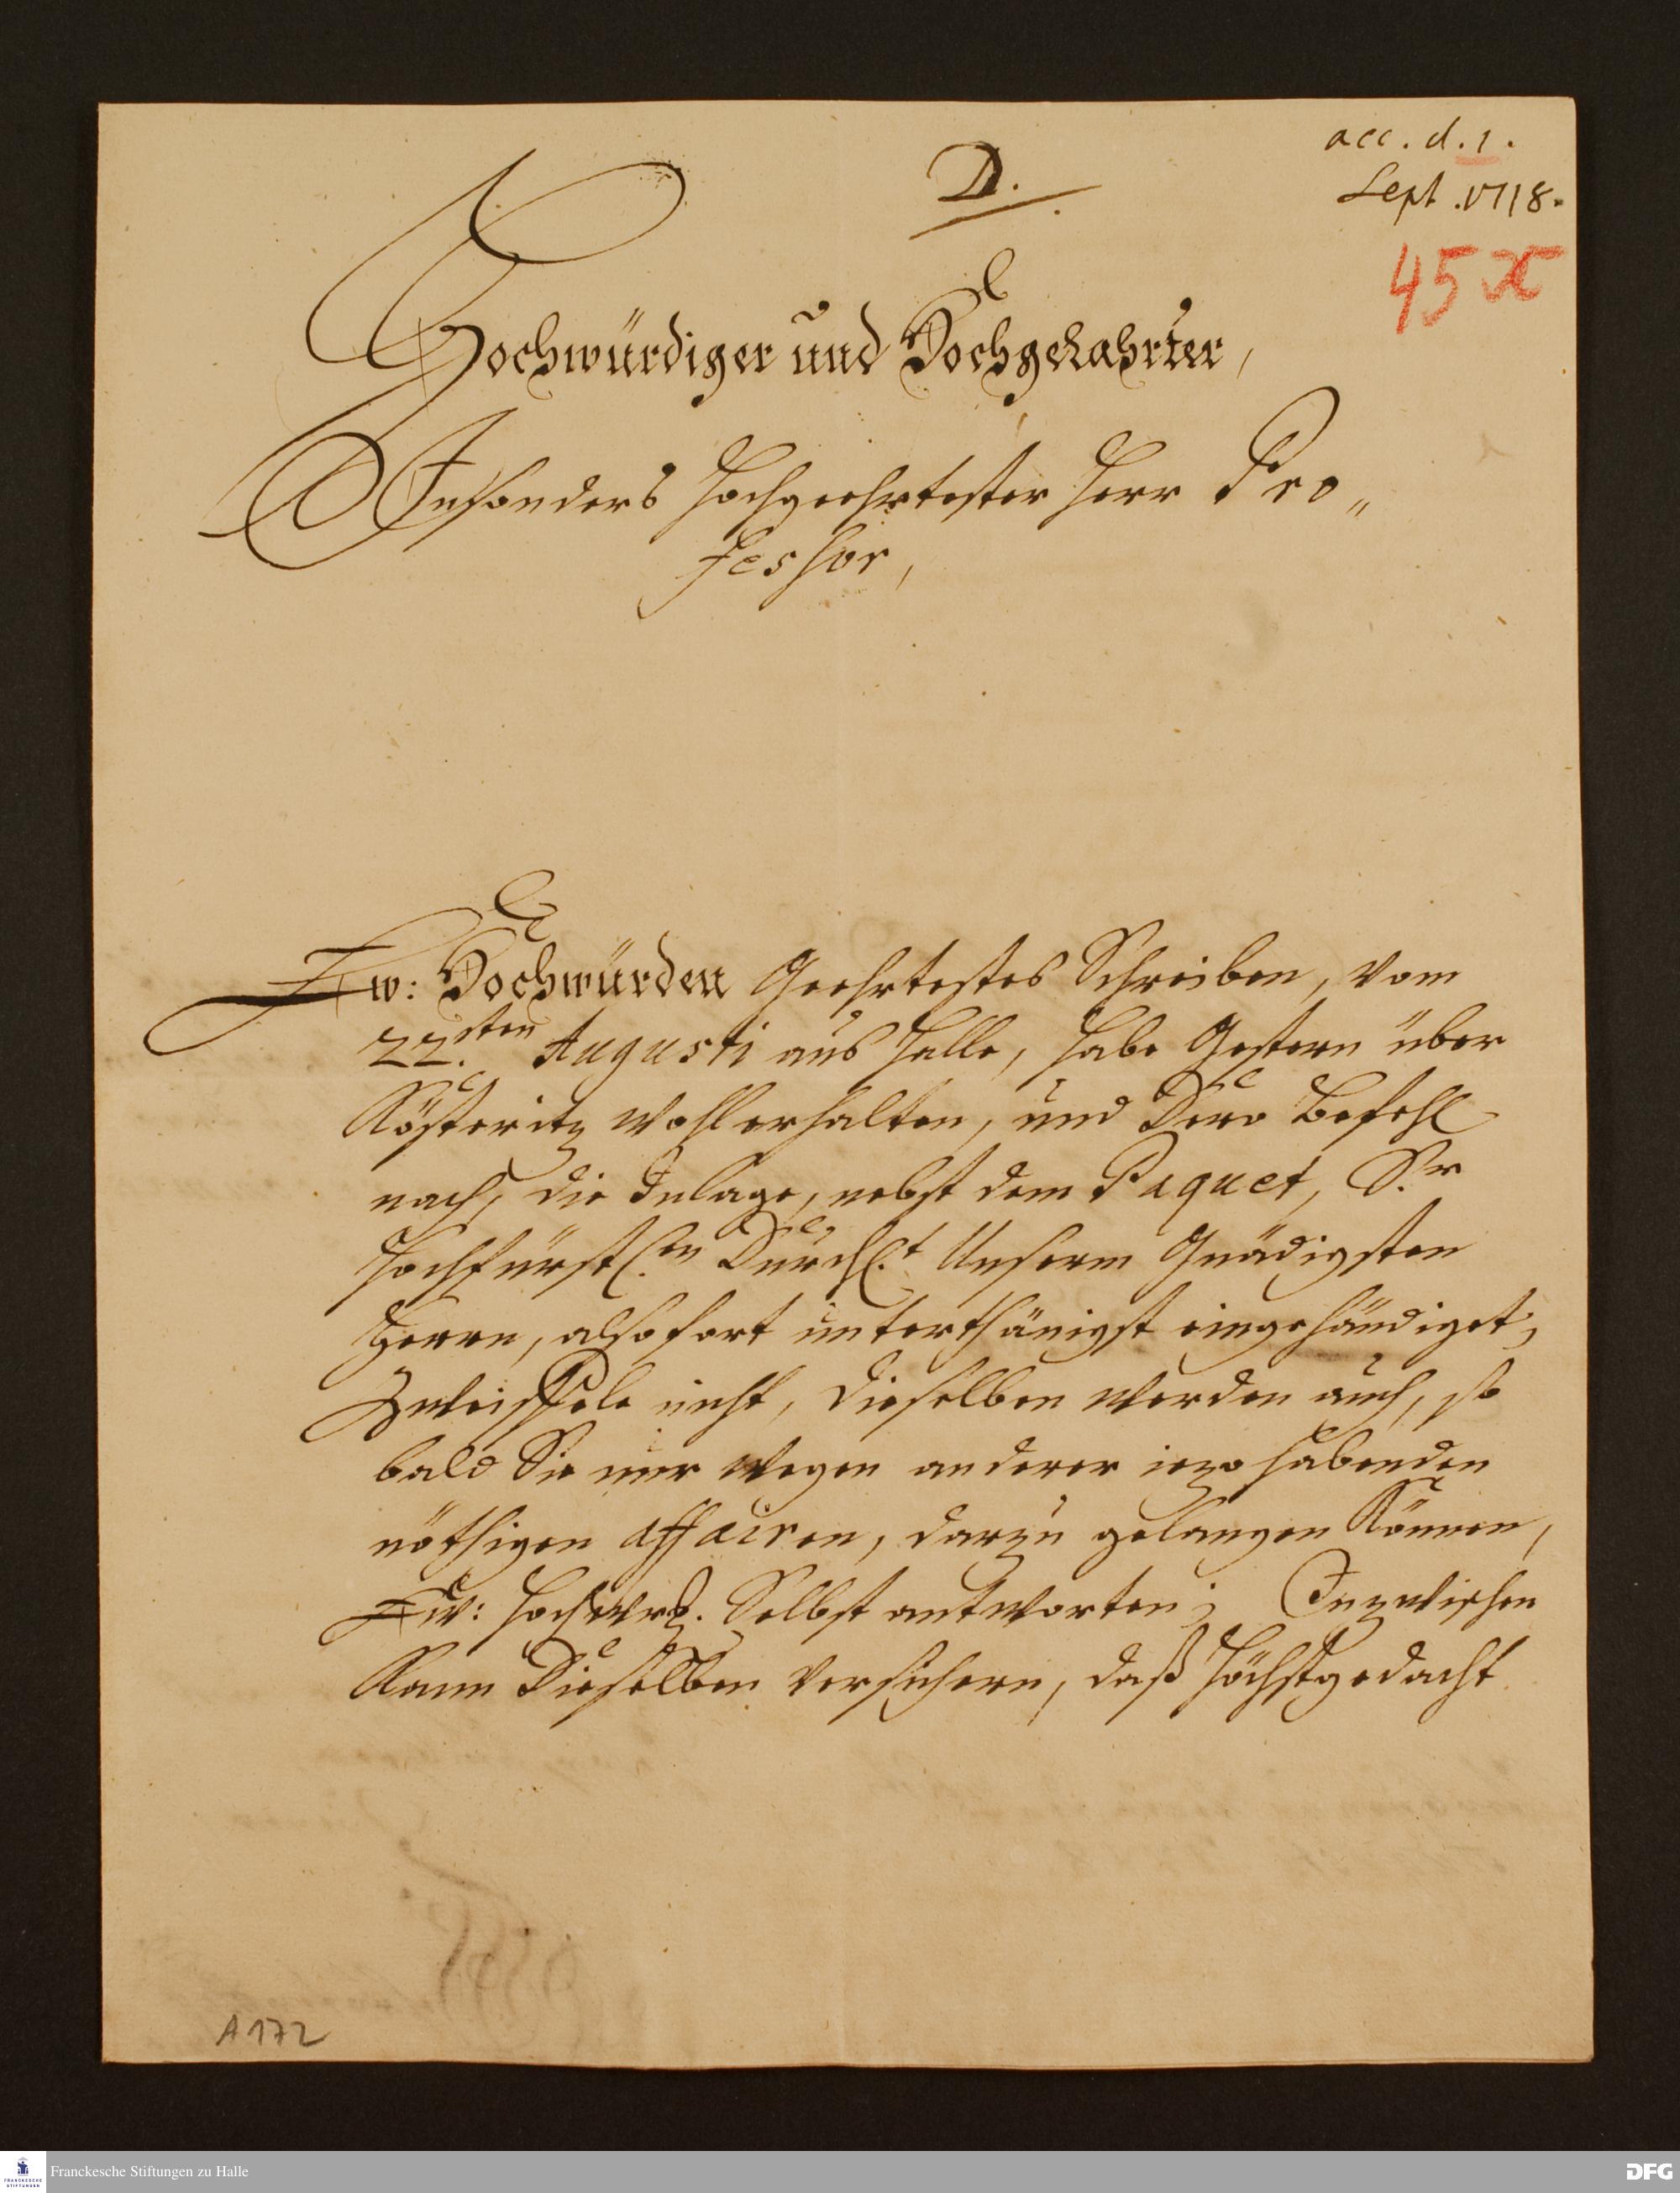 acc. d. 1.
Sept. 1718.
D.
45 x
Hochwürdiger und Hochgelahrter,
Insonders Hochgeehrtester Herr Pro„
fessor,
Ew: Hochwürden Geehrtestes Schreiben, vom
22.sten Augusti aus Halle, habe Gestern über
Kösteritz wohl erhalten, und Dero Befehl
nach, die Inlage, nebst dem Paquet, Sr.
Hochfürstl.en Durchl.t Unserm Gnädigsten
Herrn, alsofort unterthänigst eingehändiget,
Zweiffele nicht, dieselben werden auch, so
bald Sie nur wegen anderer iezo habenden
nöthigen affairen, darzu gelangen können,
Ew: Hochwrd. Selbst antworten; Inzwischen
Kann Dieselben versichern, daß Höchstgedacht
A 172
Franckesche Stiftungen zu Halle
DFG